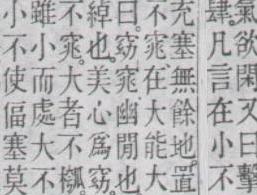 氣欲閑又曰擊
肆。凡言在小不
充塞無餘地。置
不窕在大能大
曰窈窕幽閒也
綽也。美心爲窈。
不窕。大者不槬。
雖小而處大不
小不使偪塞莫